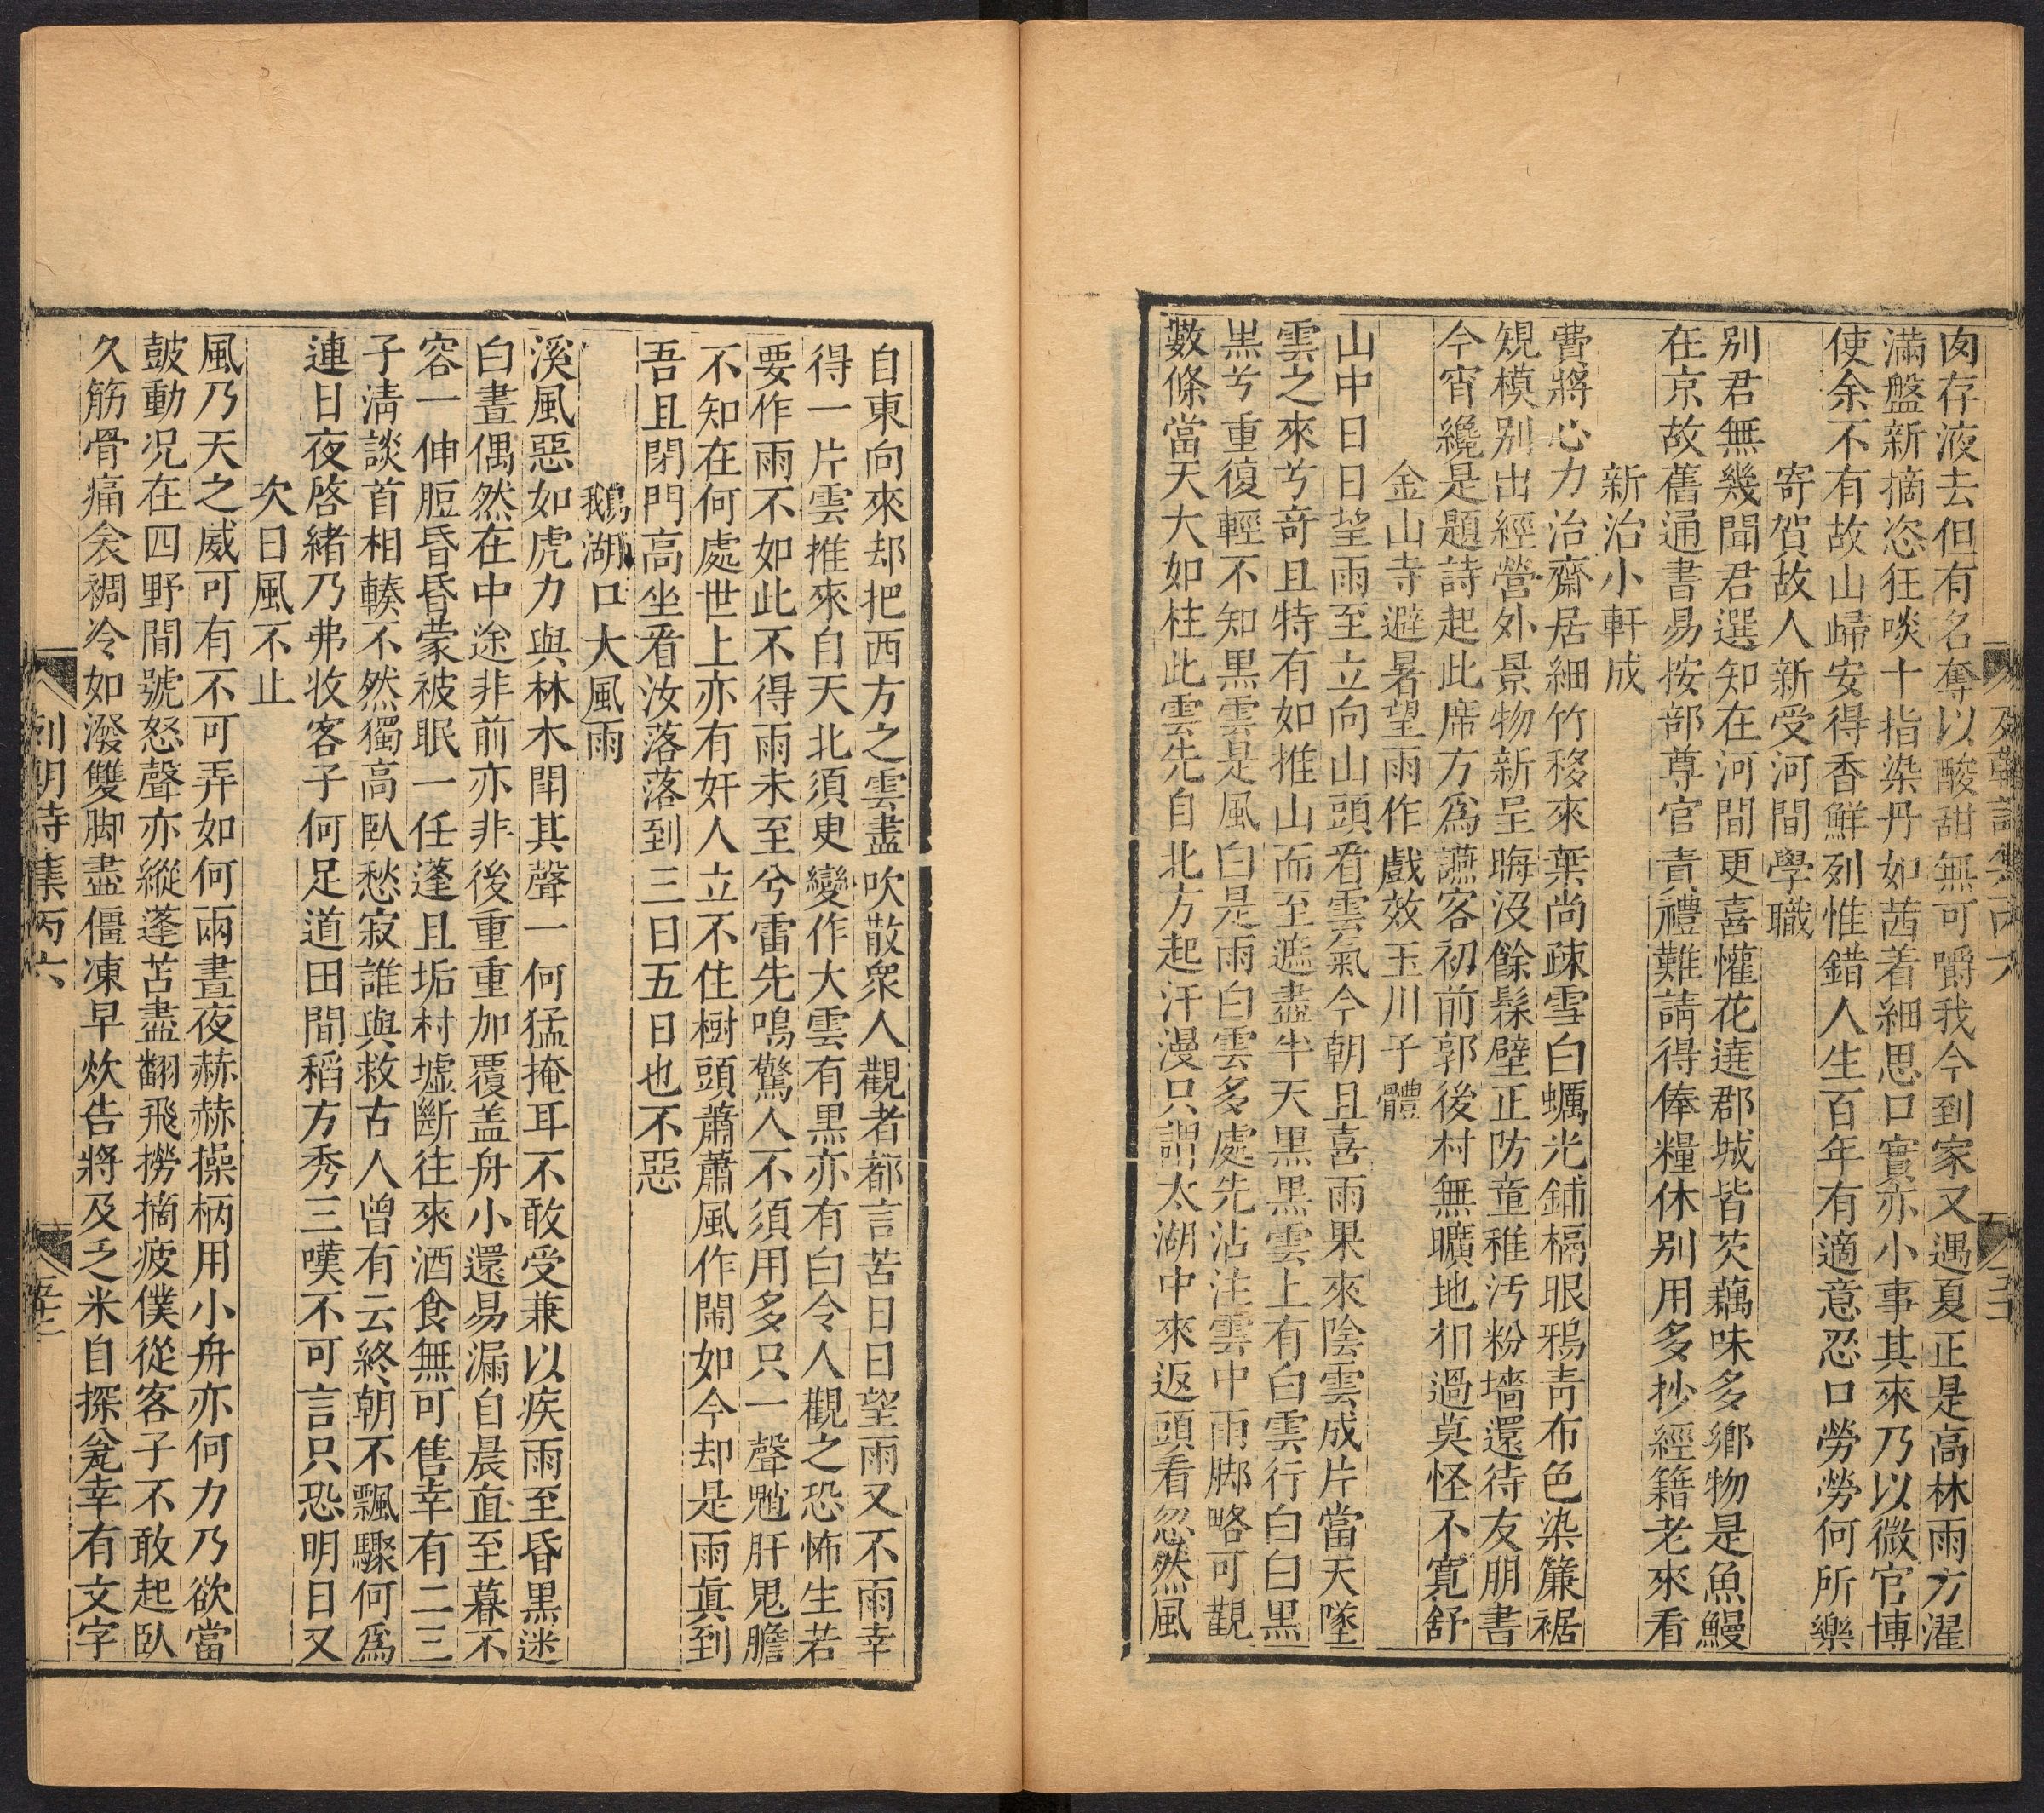 肉存液去但有名奪以酸甜無可嚼我今到家又遇夏正是高林雨方濯
滿盤新摘恣狂啖十指染丹如茜着細思口實亦小事其來乃以微官博
使余不有故山歸安得香鮮列惟錯人生百年有適意忍口勞勞何所樂
寄賀故人新受河間學職
別君無幾聞君選知在河間更喜懽花遶郡城皆芡藕味多鄉物是魚鰻
在京故舊通書易按部尊官責禮難請得俸糧休別用多抄經籍老來看
新治小軒成
費將心力治齋居細竹移來葉尚疎雪白蠣光鋪槅眼鴉青布色染簾裾
規模別出經營外景物新呈晦沒餘髹壁正防童稚汚粉墻還待友朋書
今宵纔是題詩起此席方爲讌客初前郭後村無曠地扣過莫怪不寬舒
金山寺避暑望雨作戲效玉川子體
山中日日望雨至立向山頭看雲氣今朝且喜雨果來陰雲成片當天墜
雲之來兮奇且特有如推山而至遮盡半天黑黑雲上有白雲行白白黑
黑兮重復輕不知黑雲是風白是雨白雲多處先沾注雲中雨脚略可觀
數條當天大如柱此雲先自北方起汗漫只謂太湖中來返頭看忽然風
自東向來却把西方之雲盡吹散衆人觀者都言苦日日望雨又不雨幸
得一片雲推來自天北須臾變作大雲有黑亦有白令人觀之恐怖生若
要作雨不如此不得雨未至兮雷先鳴驚人不須用多只一聲魆肝鬼膽
不知在何處世上亦有奸人立不住樹頭蕭蕭風作鬧如今却是雨眞到
吾且閉門高坐看汝落落到三日五日也不惡
鵝湖口大風雨
溪風惡如虎力與林木鬥其聲一何猛掩耳不敢受兼以疾雨至昏黑迷
白晝偶然在中途非前亦非後重重加覆盖舟小還易漏自晨直至暮不
容一伸脰昏昏蒙被眠一任蓬且垢村墟斷往來酒食無可售幸有二三
子淸談首相輳不然獨高臥愁寂誰與救古人曾有云終朝不飄驟何爲
連日夜啓緒乃弗收客子何足道田間稻方秀三嘆不可言只恐明日又
次日風不止
風乃天之威可有不可弄如何兩晝夜赫赫操柄用小舟亦何力乃欲當
鼓動况在四野間號怒聲亦縱蓬苫盡翻飛撈摘疲僕從客子不敢起臥
久筋骨痛衾裯冷如潑雙脚盡僵凍早炊告將及乏米自探瓮幸有文字
列朝詩集丙六